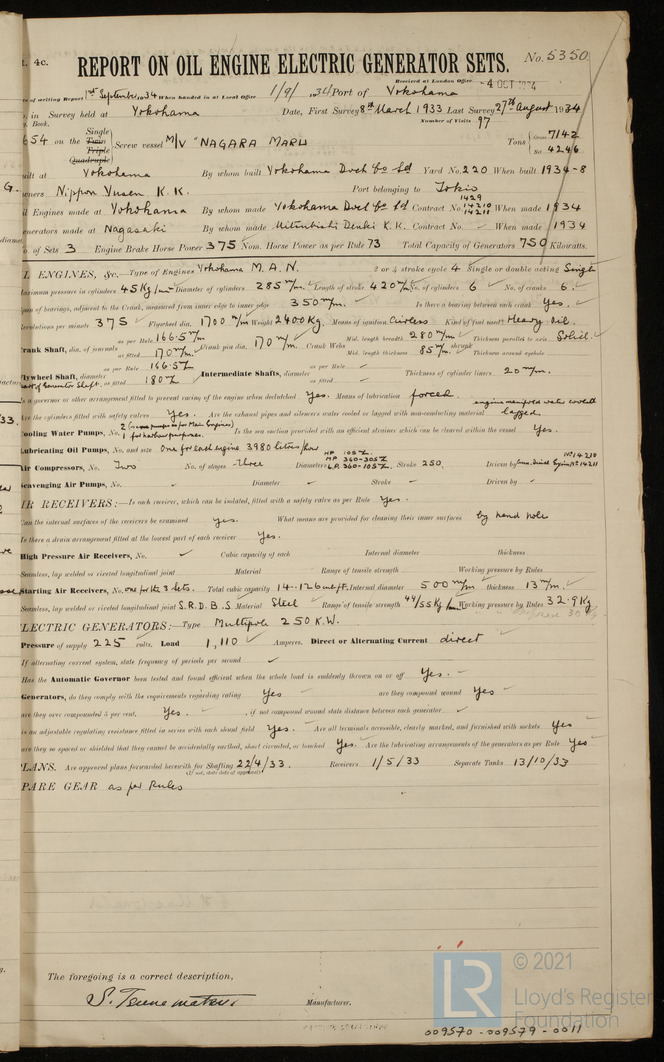 4c.
REPORT ON OIL ENGINE ELECTRIC GENERATOR SETS.
No. 5350
Received at London Office -4 OCT 1934
of writing Report 1st September 1934 When handed in at Local Office 1/9/ 1934 Port of Yokohama
in Survey held at Yokohama Date, First Survey 8th March 1933 Last Survey 27th August 1934
Book. Number of Visits 97
654 on the Single Twin Triple Quadruple Screw vessel M/V "NAGARA MARU Tons Gross 7142 Net 4246
built at Yokohama By whom built Yokohama Dock Co Ld Yard No. 220 When built 1934-8
owners Nippon Yusen K.K. Port belonging to Tokio
Oil Engines made at Yokohama By whom made Yokohama Dock Co Ld Contract No. 1429 14210 14211 When made 1934
Generators made at Nagasaki By whom made Mitsubishi Denki K.K. Contract No. When made 1934
No. of Sets 3 Engine Brake Horse Power 375 Nom. Horse Power as per Rule 73 Total Capacity of Generators 750 Kilowatts.
OIL ENGINES, &c.—Type of Engines Yokohama M.A.N. 2 or 4 stroke cycle 4 Single or double acting Single
Maximum pressure in cylinders 45 Kg/cm² Diameter of cylinders 285 m/m. Length of stroke 420 m/m No. of cylinders 6 No. of cranks 6.
Span of bearings, adjacent to the Crank, measured from inner edge to inner edge 350 m/m. Is there a bearing between each crank Yes.
Revolutions per minute 375 Flywheel dia. 1700 m/m Weight 2400 Kg. Means of ignition Airless Kind of fuel used Heavy oil.
Crank Shaft, dia. of journals as per Rule 166.5 m/m as fitted 170 m/m. Crank pin dia. 170 m/m. Crank Webs Mid. length breadth 280 m/m Mid. length thickness 85 m/m. Thickness parallel to axis Solid. Thickness around eyehole
Flywheel Shaft, diameter as per Rule 166.5 as fitted 180 Intermediate Shafts, diameter as per Rule as fitted Thickness of cylinder liners 20 m/m.
Is a governor or other arrangement fitted to prevent racing of the engine when declutched Yes. Means of lubrication forced.
Are the cylinders fitted with safety valves Yes. Are the exhaust pipes and silencers water cooled or lagged with non-conducting material engine manifold water cooled lagged.
Cooling Water Pumps, No. 2 1 for harbour purposes. Is the sea suction provided with an efficient strainer which can be cleared within the vessel Yes.
Lubricating Oil Pumps, No. and size One for each engine 3980 litres/hour
Air Compressors, No. Two No. of stages three Diameters HP 105 MP 360-305 LP 360-105 Stroke 250 Driven by No 14210 14211
Scavenging Air Pumps, No. Diameter Stroke Driven by
AIR RECEIVERS:—Is each receiver, which can be isolated, fitted with a safety valve as per Rule Yes.
Can the internal surfaces of the receivers be examined yes. What means are provided for cleaning their inner surfaces by hand hole
Is there a drain arrangement fitted at the lowest part of each receiver yes.
High Pressure Air Receivers, No. Cubic capacity of each Internal diameter thickness
Seamless, lap welded or riveted longitudinal joint Material Range of tensile strength Working pressure by Rules
Starting Air Receivers, No. one for the 3 sets. Total cubic capacity 14.126 cu.ft. Internal diameter 500 m/m thickness 13 m/m.
Seamless, lap welded or riveted longitudinal joint S.R.D.B.S. Material Steel Range of tensile strength 44/55 Kg/mm Working pressure by Rules 32.9 Kg
ELECTRIC GENERATORS:—Type Multipole 250 K.W.
Pressure of supply 225 volts. Load 1,110 Amperes. Direct or Alternating Current direct
If alternating current system, state frequency of periods per second
Has the Automatic Governor been tested and found efficient when the whole load is suddenly thrown on or off Yes.
Generators, do they comply with the requirements regarding rating Yes are they compound wound Yes
are they over compounded 5 per cent. Yes. , if not compound wound state distance between each generator
is an adjustable regulating resistance fitted in series with each shunt field Yes. Are all terminals accessible, clearly marked, and furnished with sockets Yes
are they so spaced or shielded that they cannot be accidentally earthed, short circuited, or touched Yes. Are the lubricating arrangements of the generators as per Rule Yes
PLANS. Are approved plans forwarded herewith for Shafting 22/4/33. Receivers 1/5/33 Separate Tanks 13/10/33
(If not, state date of approval)
SPARE GEAR as per Rules
The foregoing is a correct description,
Manufacturer.
© 2021
LR
Lloyd's Register
Foundation
009570-009579-0011